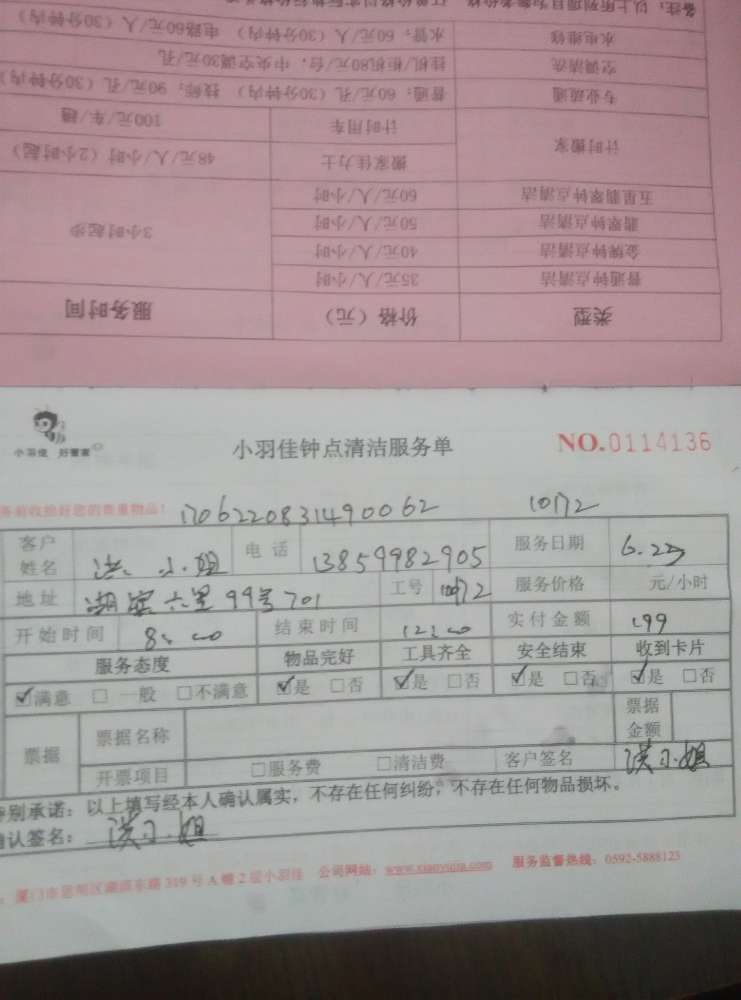 备注：以上所列项目为参考价格
水电维修 水管：60元/人（30分钟内） 电路60元/人（30分钟内）
空调清洗 挂机/柜机80元/台，中央空调30元/孔
专业疏通 普通：60元/孔（30分钟内） 技师：90元/孔（30分钟内）
计时搬家 计时用车 100元/车/趟
搬家佳力士 48元/人/小时（2小时起）
五星翡翠钟点清洁 60元/人/小时
翡翠钟点清洁 50元/人/小时 3小时起步
金牌钟点清洁 40元/人/小时
普通钟点清洁 35元/人/小时
类型 价格（元） 服务时间
小羽佳 好管家
小羽佳钟点清洁服务单
NO.0114136
务前收拾好您的贵重物品！ 1706220831490062 10172
客户姓名 洪小姐 电话 13859982905 服务日期 6.25
地址 99号701 工号 10172 服务价格 元/小时
开始时间 8:00 结束时间 12:00 实付金额 199
服务态度 物品完好 工具齐全 安全结束 收到卡片
☑满意 □一般 □不满意 ☑是 □否 ☑是 □否 ☑是 □否 ☑是 □否
票据 票据名称 票据金额
开票项目 □服务费 □清洁费 客户签名 洪小姐
特别承诺：以上填写经本人确认属实，不存在任何纠纷，不存在任何物品损坏。
确认签名： 洪小姐
厦门市思明区湖滨东路319号A幢2层小羽佳 公司网站：www.xiaoyujia.com 服务监督热线：0592-5888123